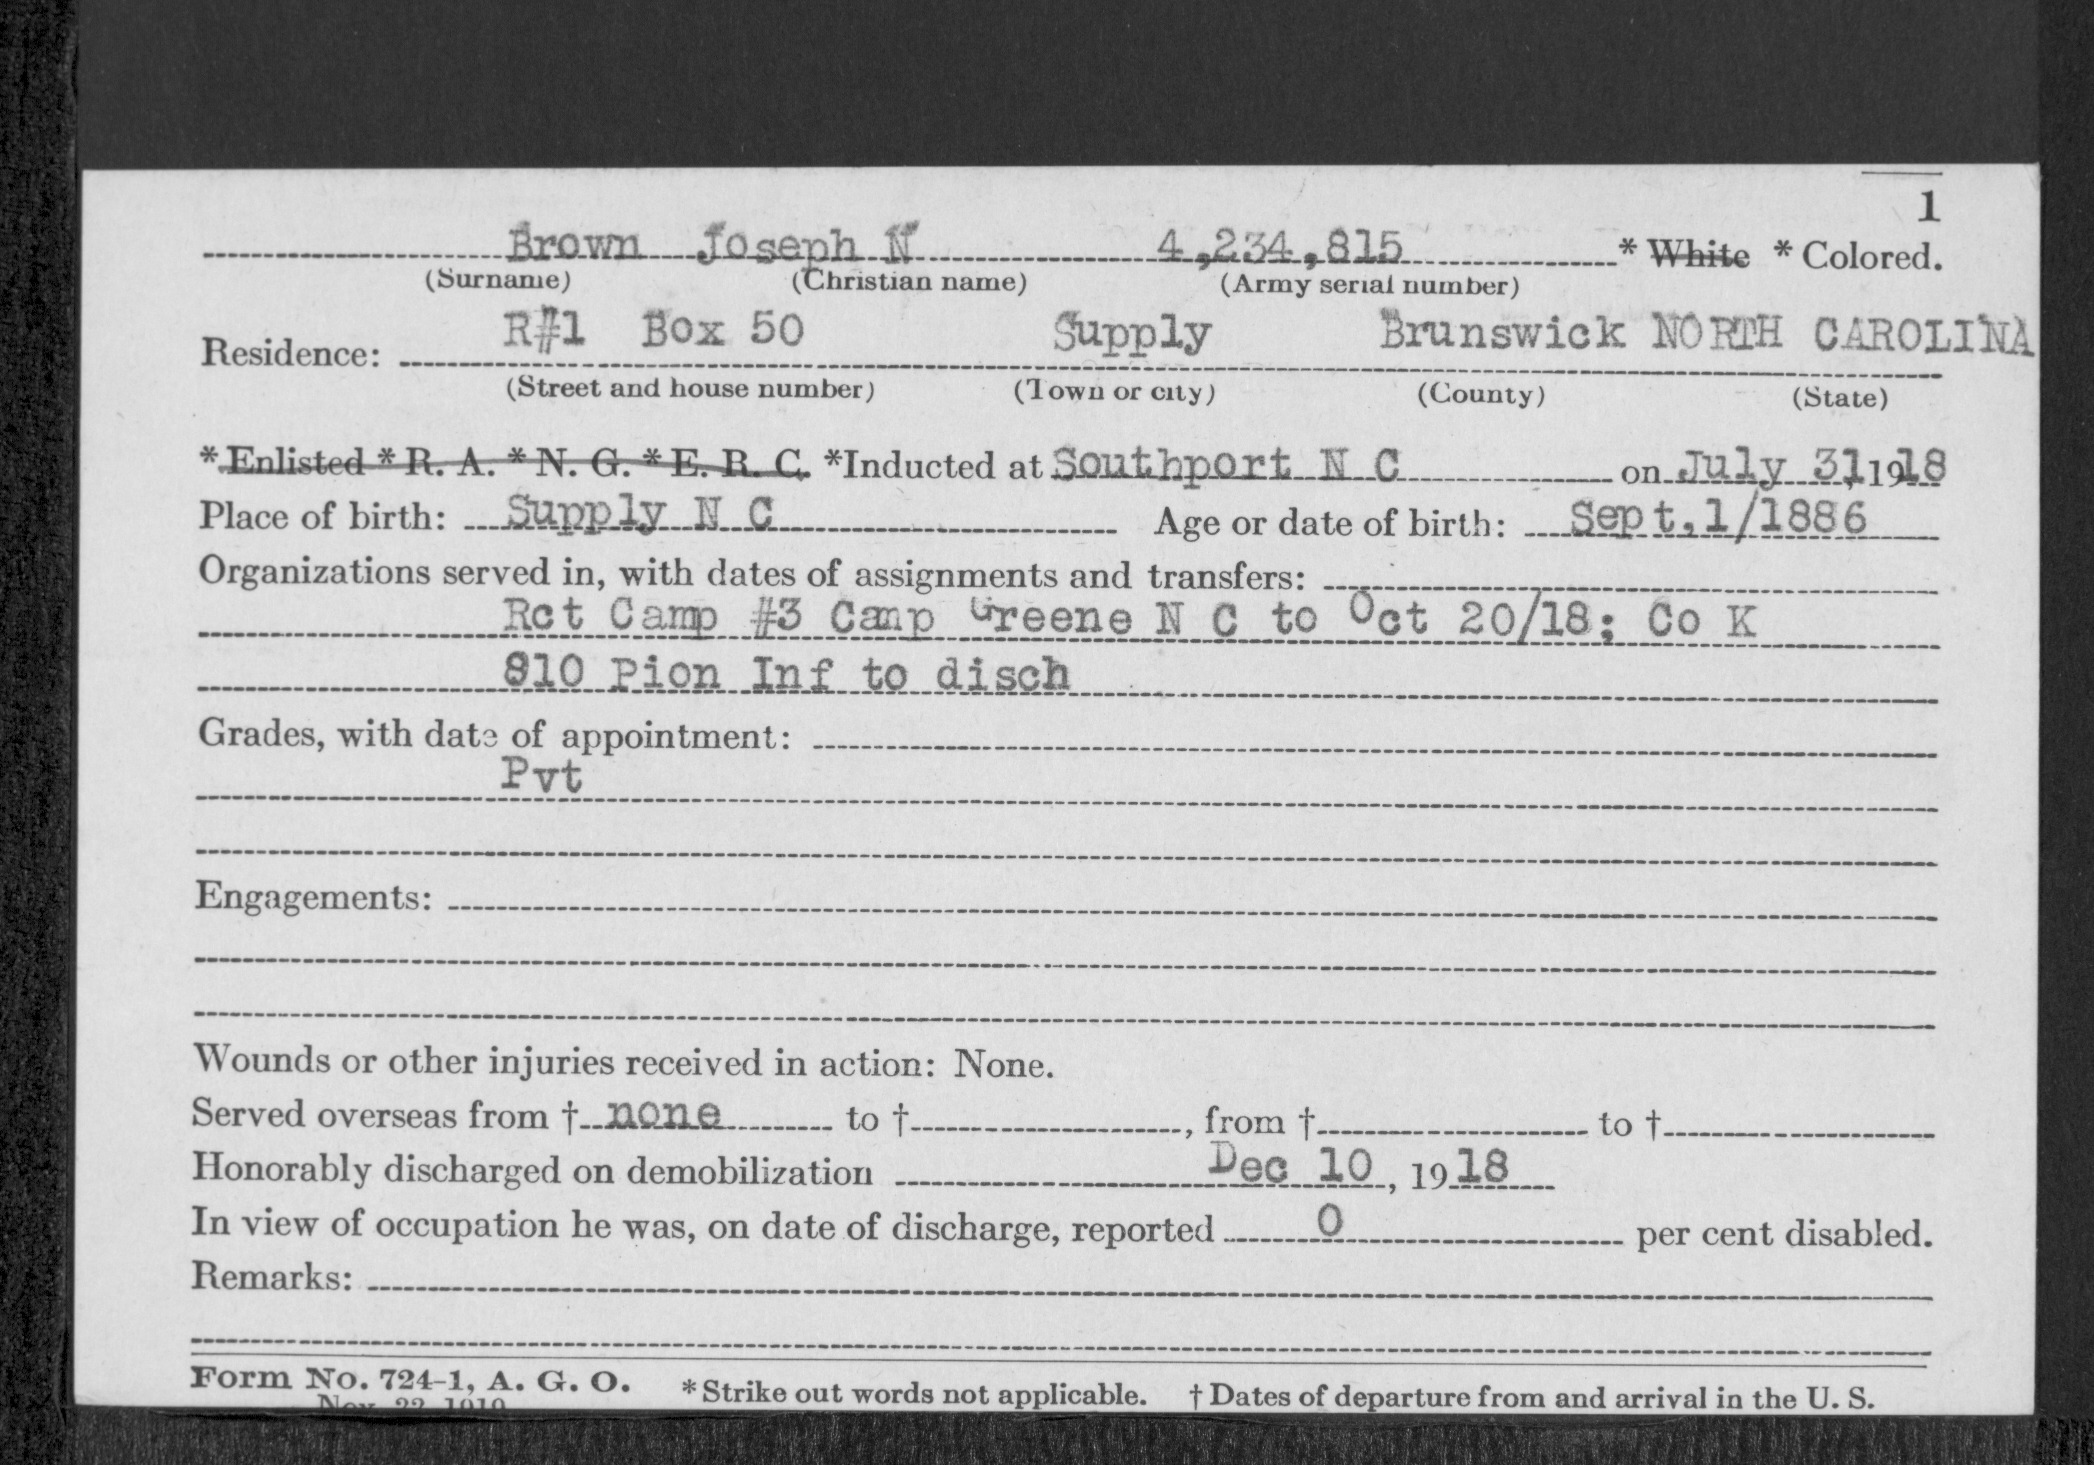 1
Brown Joseph N 4,234,815 * White * Colored.
(Surname) (Christian name) (Army serial number)
R#1 Box 50 Supply Brunswick NORTH CAROLINA
Residence:
(Street and house number) (Town or city) (County) (State)
* Enlisted * R. A. * N. G. * E. R. C. *Inducted at Southport N C on July 31, 1918
Place of birth: Supply N C Age or date of birth: Sept.1/1886
Organizations served in, with dates of assignments and transfers:
Rct Camp #3 Camp Greene N C to Oct 20/18; Co K
810 Pion Inf to disch
Grades, with date of appointment:
Pvt
Engagements:
Wounds or other injuries received in action: None.
Served overseas from † none to †, from † to †
Honorably discharged on demobilization Dec 10, 1918
In view of occupation he was, on date of discharge, reported 0 per cent disabled.
Remarks:
Form No. 724-1, A. G. O. * Strike out words not applicable. † Dates of departure from and arrival in the U. S.
Nov. 22, 1919